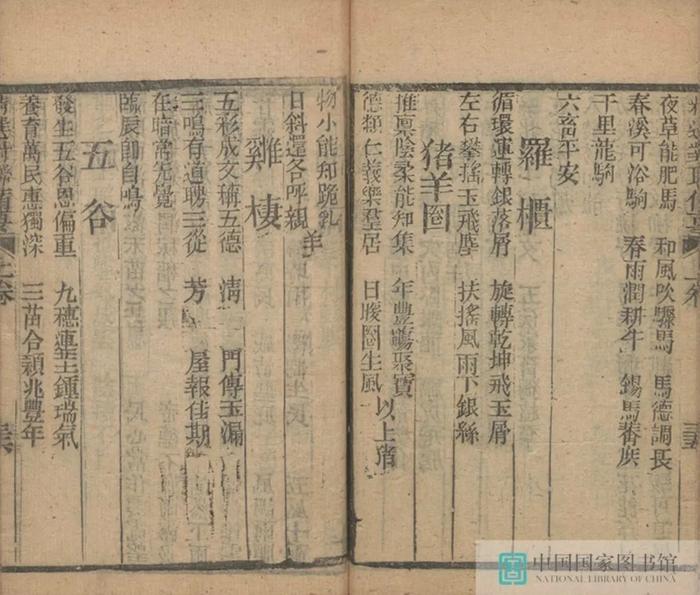 夜草能肥馬 和風吹騍馬 馬德調良
春溪可浴駒 春雨潤耕牛 錫馬蕃庶
千里龍駒
六畜平安
羅櫃
循環運轉銀落屑 旋轉乾坤飛玉屑
左右攀搖玉飛塵 扶搖風雨下銀絲
猪羊圈
推稟陰柔能知集 年豐暢聚寶
德類仁義樂羣居 日暖圈生風 以上猪
物小能知跪乳
日斜還各呼親 羊
雞棲
五彩成文稱五德 清 門傳玉漏
三鳴有道聘三從 芳 屋報佳期
在暗常先覺
臨辰即自鳴
五谷
發生五谷恩偏重 九穗連莖土鍾瑞氣
養育萬民惠獨深 三苗合穎兆豐年
上卷
中国国家图书馆
NATIONAL LIBRARY OF CHINA